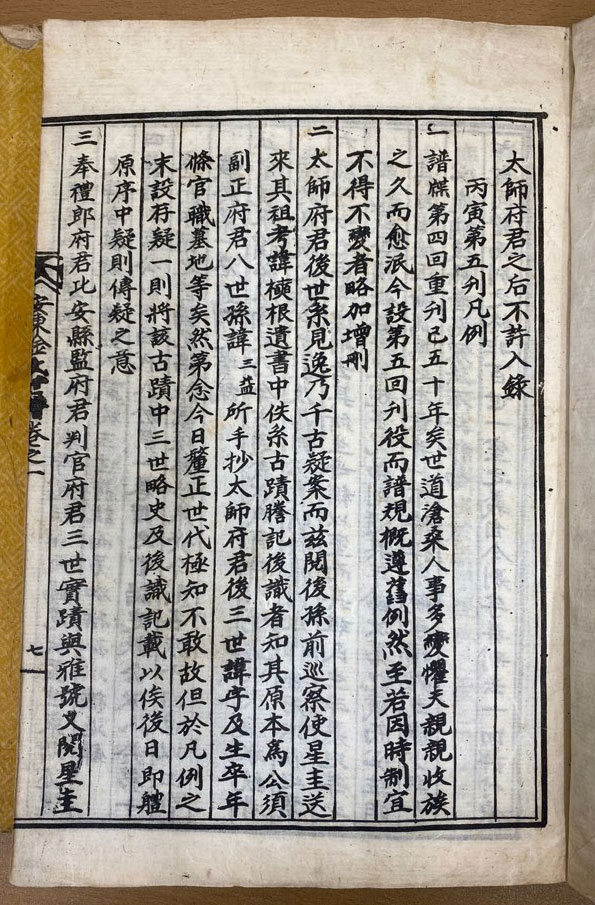 太師府君之后不許入錄
丙寅第五刊凡例
一 譜牒第四回重刊已五十年矣世道滄桑人事多變懼夫親親收族
之久而愈泯今設第五回刊役而譜規概遵舊例然至若因時制宜
不得不變者略加增刪
二 太師府君後世系見逸乃千古疑案而茲閱後孫前巡察使星圭送
來其祖考諱根遺書中佚系古蹟謄記後識者知其原本爲公須
副正府君八世孫諱三益所手抄太師府君後三世諱字及生卒年
條官職墓地等矣然第念今日釐正世代極知不敢故但於凡例之
末設存疑一則將該古蹟中三世略史及後識記載以俟後日即體
原序中疑則傳疑之意
三 奉禮郎府君比安縣監府君判官府君三世實蹟與雅號又閱星圭
安東金氏譜卷之一
七